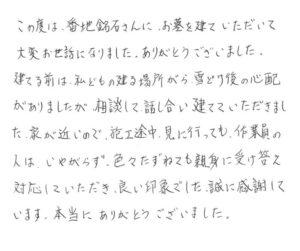 この度は、番地銘石さんに、お墓を建ていただいて
大変お世話になりました。ありがとうございました。
建てる前は、私どもの建る場所がら 雪どり後の心配
がありましたが 相談して話し合い 建てていただきまし
た。家が近いので、施工途中、見に行っても、作業員の
人は、いやがらず、色々たずねても親身に受け答え
対応していただき、良い印象でした。誠に感謝して
います。本当に ありがとうございました。